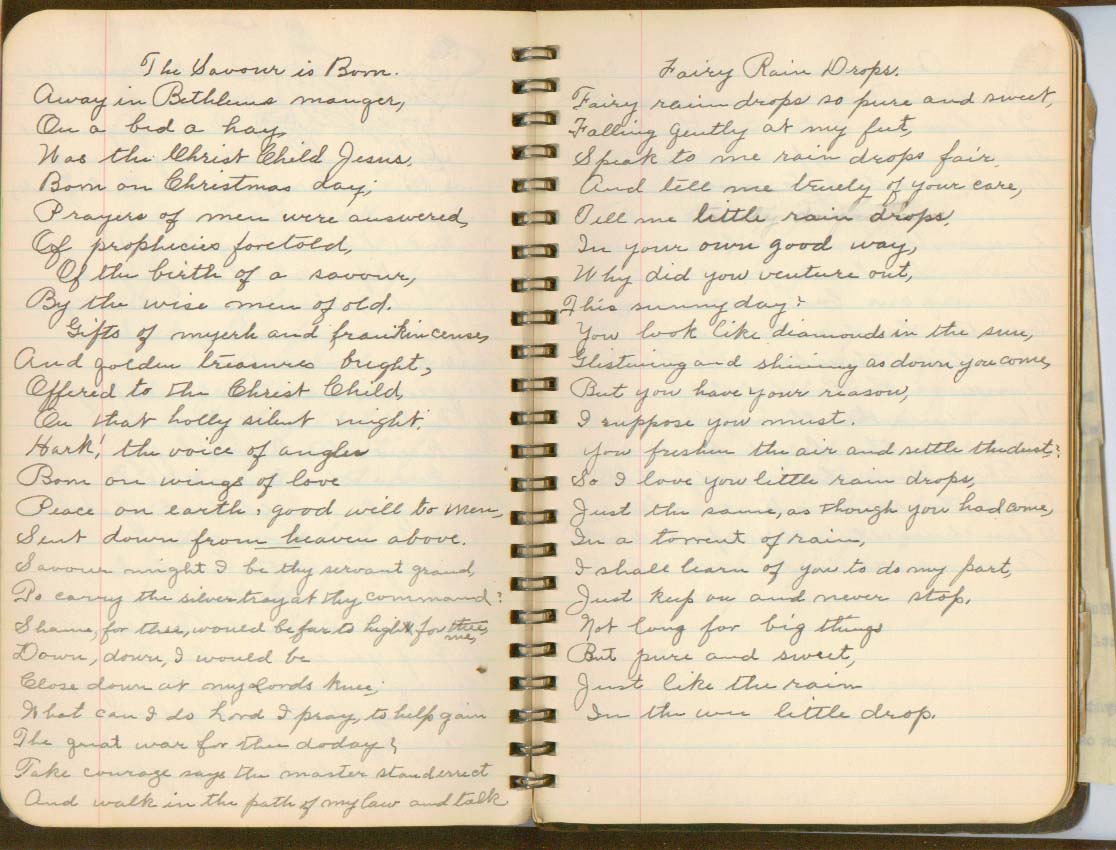 The Savour is Born.
Away in Bethlems manger,
On a bed a hay,
Was the Christ Child Jesus,
Born on Christmas day;
Prayers of men were answered,
Of prophicies foretold,
Of the birth of a savour,
By the wise men of old.
Gifts of myerh and frankincense,
And golden treasures bright,
Offered to the Christ Child,
On that holly silent night.
Hark! the voice of angles
Born on wings of love
Peace on earth, good will to men,
Sent down from heaven above.
Savour might I be thy servant grand,
To carry the silver tray at thy command?
Shame, for thee, would be far to high for thee,
me,
Down, down, I would be
Close down at my Lords knee;
What can I do Lord I pray, to help gain
The great war for thee doday?
Take courage says the master stand errect
And walk in the path of my law and talk
Fairy Rain Drops.
Fairy rain drops so pure and sweet,
Falling gently at my feet,
Speak to me rain drops fair
And tell me truely of your care,
Tell me little rain drops,
In your own good way,
Why did you venture out,
This sunny day?
You look like diamonds in the sun,
Glistening and shining as down you come,
But you have your reason,
I suppose you must.
you freshen the air and settle the dust?
So I love you little rain drops,
Just the same, as though you had come,
In a torrent of rain,
I shall learn of you to do my part,
Just keep on and never stop.
Not long for big things
But pure and sweet,
Just like the rain
In the wee little drop.